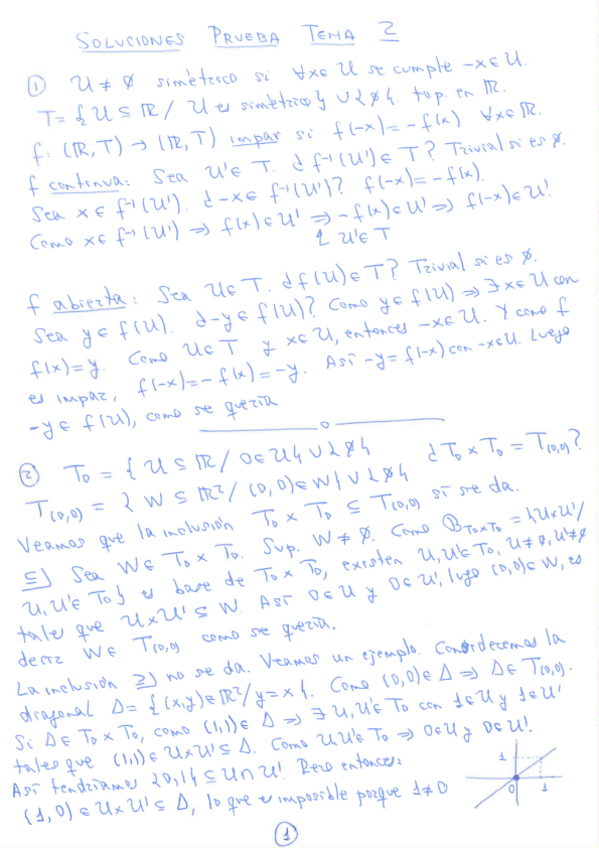 SOLUCIONES PRUEBA TEMA 2
① U ≠ ∅ simétrico si ∀x∈U se cumple -x∈U.
T = {U ⊆ ℝ / U es simétrico} ∪ {∅}. top. en ℝ.
f: (ℝ,T) → (ℝ,T) impar si f(-x) = -f(x) ∀x∈ℝ.
f continua: Sea U'∈T. ¿f⁻¹(U')∈T? Trivial si es ∅.
Sea x∈f⁻¹(U'). ¿-x∈f⁻¹(U')? f(-x) = -f(x).
Como x∈f⁻¹(U') ⇒ f(x)∈U' ⇒ -f(x)∈U' ⇒ f(-x)∈U'.
U'∈T
f abierta: Sea U∈T. ¿f(U)∈T? Trivial si es ∅.
Sea y∈f(U). ¿-y∈f(U)? Como y∈f(U) ⇒ ∃x∈U con
f(x)=y. Como U∈T y x∈U, entonces -x∈U. Y como f
es impar, f(-x) = -f(x) = -y. Así -y = f(-x) con -x∈U. Luego
-y∈f(U), como se quería
② T₀ = {U ⊆ ℝ / 0∈U} ∪ {∅} ¿T₀ × T₀ = T(0,0)?
T(0,0) = {W ⊆ ℝ² / (0,0)∈W} ∪ {∅}
Veamos que la inclusión T₀ × T₀ ⊆ T(0,0) sí se da.
⊆] Sea W∈T₀ × T₀. Sup. W ≠ ∅. Como B_T₀×T₀ = {U×U' /
U,U'∈T₀} es base de T₀ × T₀, existen U,U'∈T₀, U≠∅, U'≠∅
tales que U×U' ⊆ W. Así 0∈U y 0∈U', luego (0,0)∈W, es
decir W∈T(0,0) como se quería.
La inclusión ⊇] no se da. Veamos un ejemplo. Consideremos la
diagonal Δ = {(x,y)∈ℝ² / y = x}. Como (0,0)∈Δ ⇒ Δ∈T(0,0).
Si Δ∈T₀ × T₀, como (1,1)∈Δ ⇒ ∃U,U'∈T₀ con 1∈U y 1∈U'
tales que (1,1)∈U×U' ⊆ Δ. Como U,U'∈T₀ ⇒ 0∈U y 0∈U'.
Así tendríamos {0,1} ⊆ U∩U'. Pero entonces:
(1,0)∈U×U' ⊆ Δ, lo que es imposible porque 1≠0
1
0 1
①